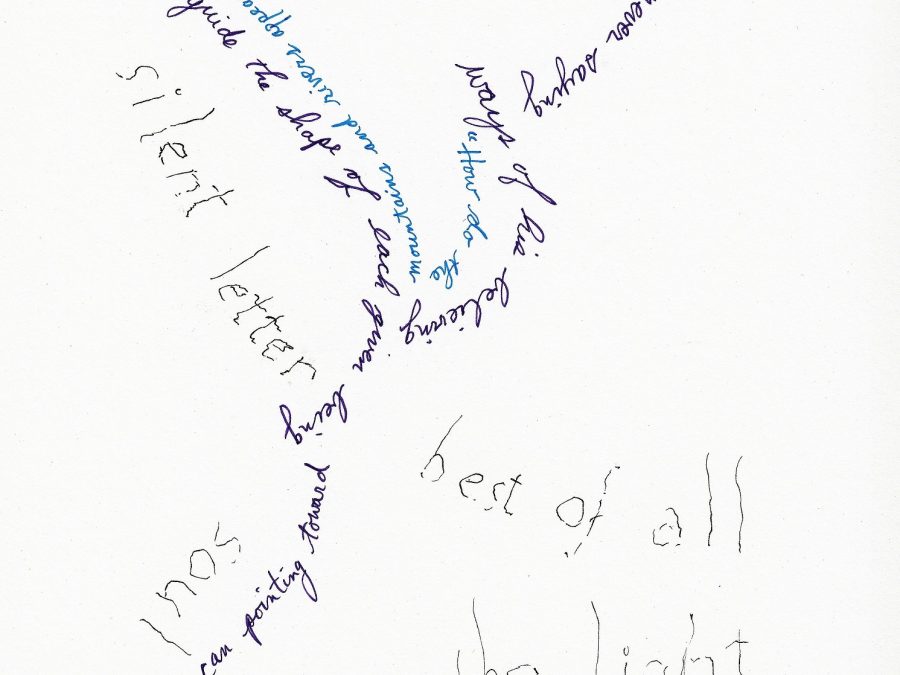 never saying
ways of his believing
"How do the
mountains and rivers appea
guide the shape of each given being
can pointing toward
silent letter
soul
best of all
the light